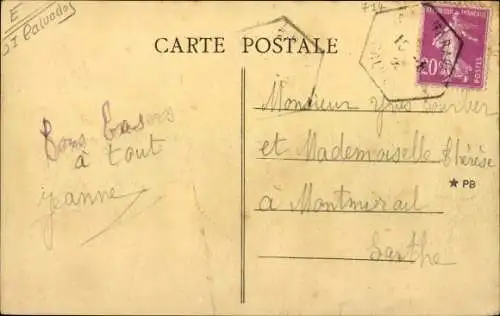 E
21 Calvados
CARTE POSTALE
POSTES
20c
Bons Baisers
à tout
Jeanne
Monsieur Yves
et Mademoiselle Thérèse
★ PB
à Montmirail
Sarthe